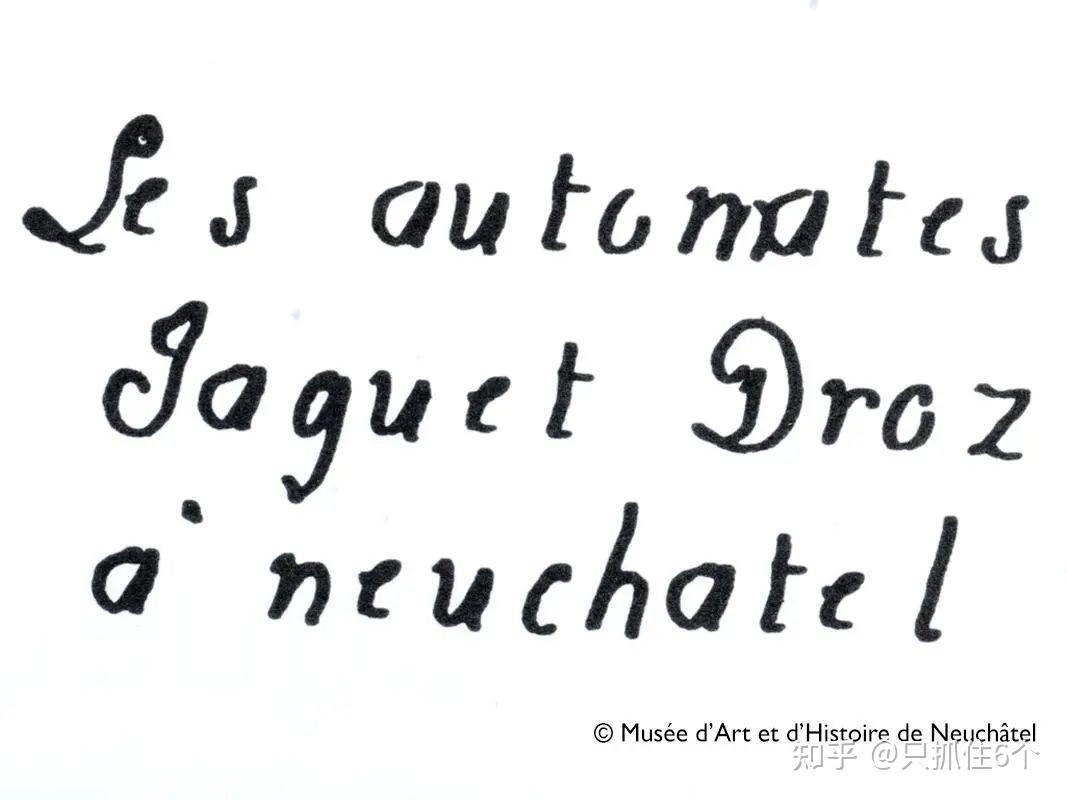 Les automates
Jaquet Droz
à neuchatel
© Musée d'Art et d'Histoire de Neuchâtel
知乎 @只抓住6个